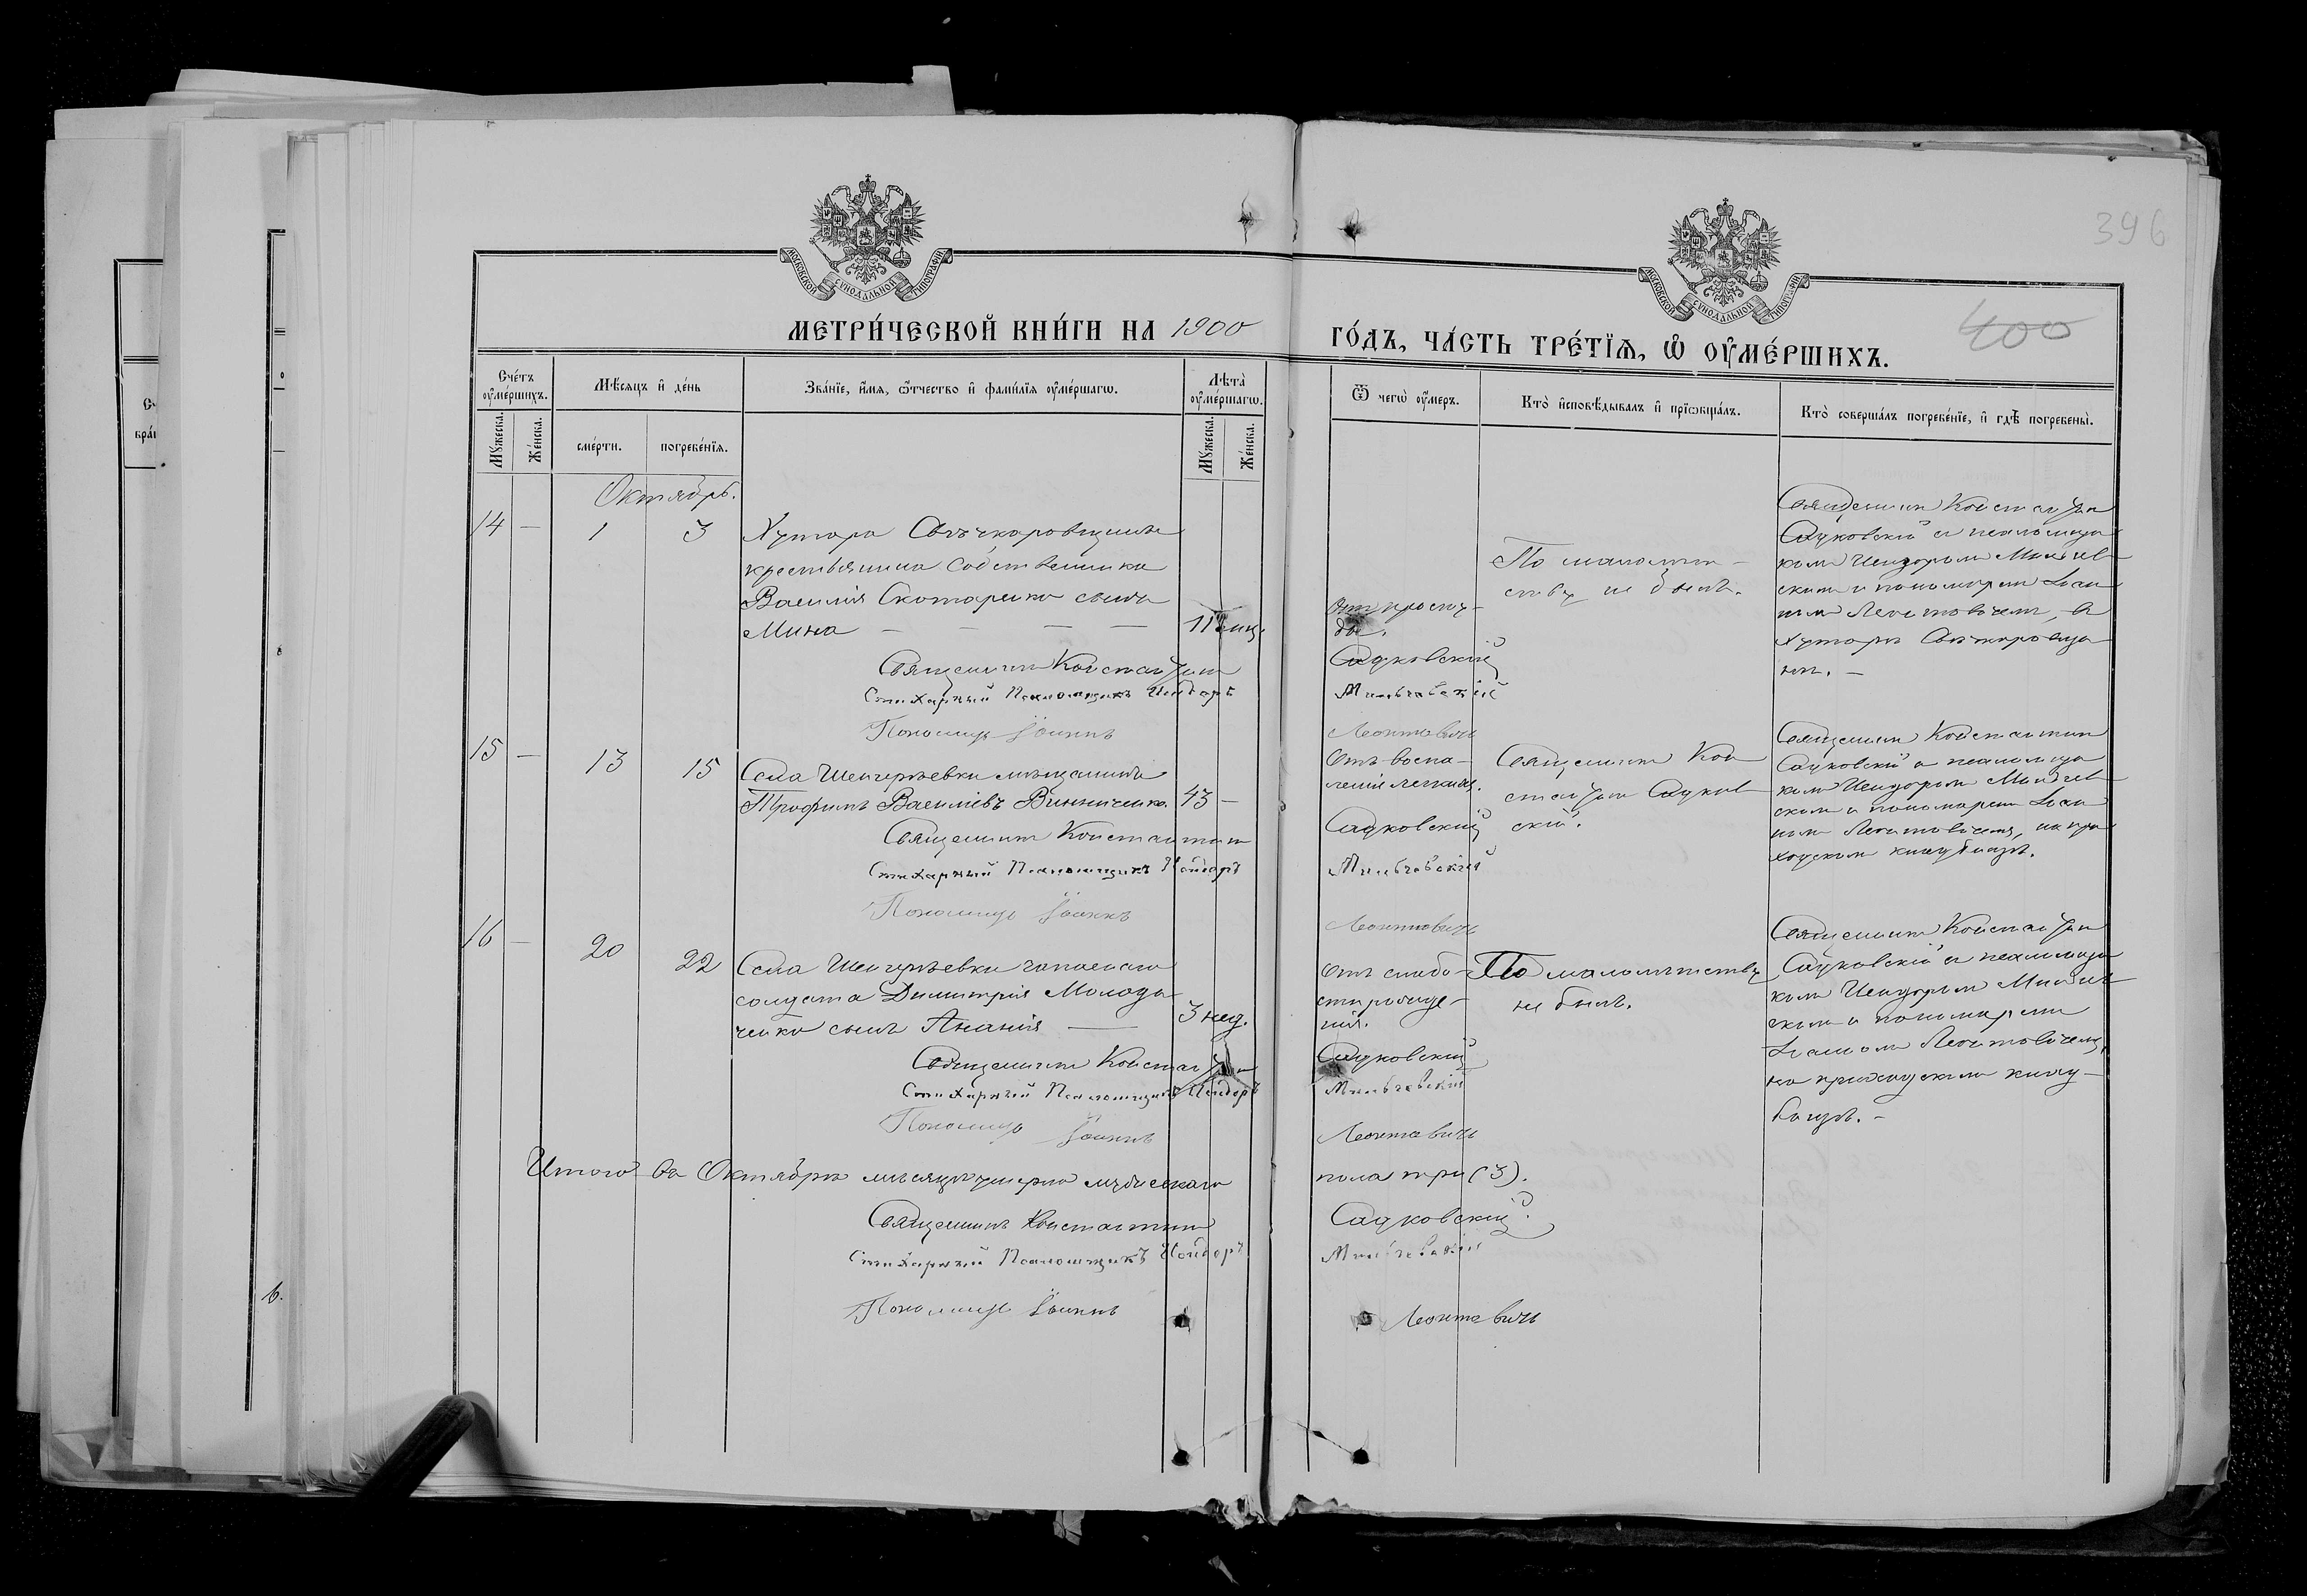 396
МОСКОВСКОЙ СѴНОДАЛЬНОЙ ТИПОГРАФІИ
МОСКОВСКОЙ СѴНОДАЛЬНОЙ ТИПОГРАФІИ
МЕТРИ́ЧЕСКОЙ КНИ́ГИ НА 1900
ГО́ДЪ, ЧА́СТЬ ТРЕ́ТЇѦ, Ѽ ОУ҆МЕ́РШИХЪ.
400
Сче́тъ оу҆ме́ршихъ.
Мѣ́сяцъ и҆ де́нь
Зва́нїе, и҆́мя, ѻ҆́тчество и҆ фами́лїя оу҆ме́ршагѡ.
Лѣта̀ оу҆ме́ршагѡ.
Ѿ чегѡ̀ оу҆́меръ.
Кто̀ и҆сповѣ́дывалъ и҆ прїѡбща́лъ.
Кто̀ соверша́лъ погребе́нїе, и҆ гдѣ̀ погребены̀.
Мꙋ́жеска.
Же́нска.
сме́рти.
погребе́нїя.
Мꙋ́жеска.
Же́нска.
Октябрь.
14 —
1
3
Хутора
крестьянина собственника
Василія Скотаренко сына
Мина — — — —
11
Отъ просту-
ды.
По малолѣт-
ству не былъ.
Священникъ Константинъ
Садковскій съ псаломщи
комъ Исидоромъ
скимъ и пономаремъ Іоан
номъ Леонтовичемъ, въ
Хуторѣ
Священникъ Константинъ
Садковскій
Стихарный Псаломщикъ Исидоръ
Пономарь Іоаннъ
Леонтовичъ
15 —
13
15
Села
мѣщанинъ
Трофимъ Васильевъ Винниченко.
43 —
Отъ воспа-
ленія легкихъ.
Священникъ Кон
стантинъ Садков
скій.
Священникъ Константинъ
Садковскій съ псаломщи
комъ Исидоромъ
скимъ и пономаремъ Іоан
номъ Леонтовичемъ, на при
ходскомъ кладбищѣ.
Священникъ Константинъ
Садковскій
Стихарный Псаломщикъ Исидоръ
Пономарь Іоаннъ
Леонтовичъ
16 —
20
22
Села
запаснаго
солдата Димитрія Молода
ченко сынъ Ананія —
3 нед.
Отъ слабо-
сти рожде-
нія.
По малолѣтству
не былъ.
Священникъ Константинъ
Садковскій съ псаломщи
комъ Исидоромъ
скимъ и пономаремъ
Іоанномъ Леонтовичемъ,
на приходскомъ клад-
бищѣ. —
Священникъ Константинъ
Садковскій
Стихарный Псаломщикъ Исидоръ
Пономарь Іоаннъ
Леонтовичъ
Итого въ Октябрѣ мѣсяцѣ умерло мужескаго
пола три (3).
Священникъ Константинъ
Садковскій.
Стихарный Псаломщикъ Исидоръ
Пономарь Іоаннъ
Леонтовичъ